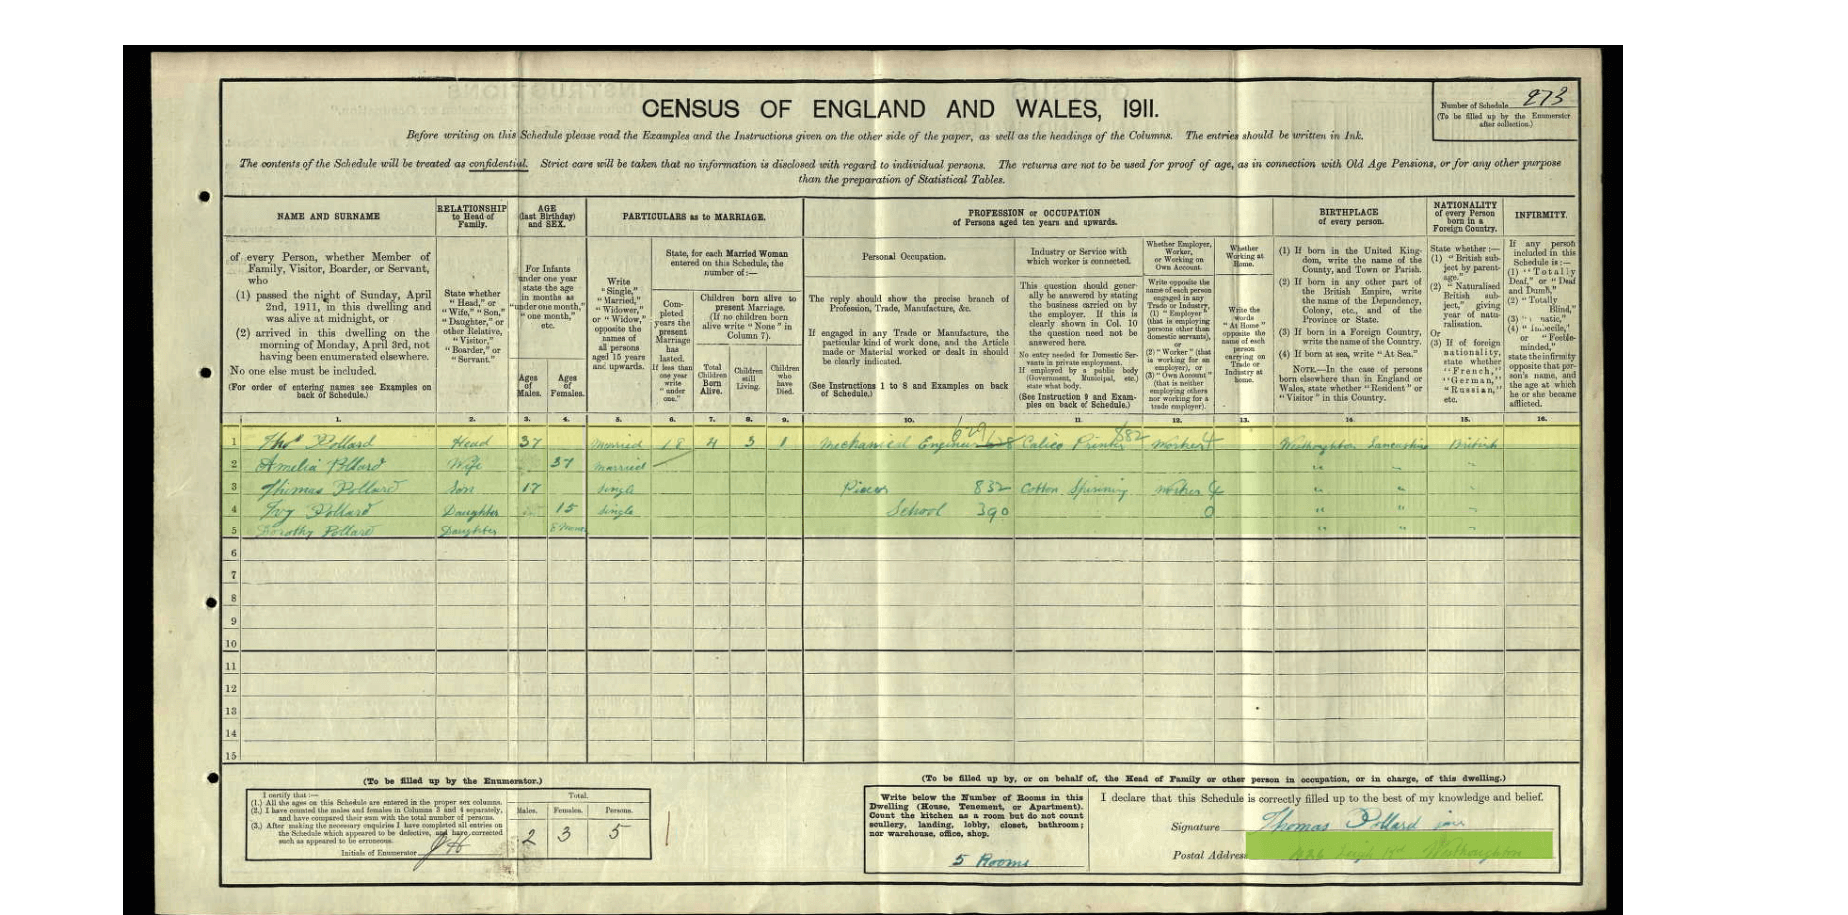 Number of Schedule 273
(To be filled up by the Enumerator
after collection.)
CENSUS OF ENGLAND AND WALES, 1911.
Before writing on this Schedule please read the Examples and the Instructions given on the other side of the paper, as well as the headings of the Columns. The entries should be written in Ink.
The contents of the Schedule will be treated as confidential. Strict care will be taken that no information is disclosed with regard to individual persons. The returns are not to be used for proof of age, as in connection with Old Age Pensions, or for any other purpose
than the preparation of Statistical Tables.
NAME AND SURNAME
RELATIONSHIP
to Head of
Family.
AGE
(last Birthday)
and SEX.
PARTICULARS as to MARRIAGE.
PROFESSION or OCCUPATION
of Persons aged ten years and upwards.
BIRTHPLACE
of every person.
NATIONALITY
of every Person
born in a
Foreign Country.
INFIRMITY.
of every Person, whether Member of
Family, Visitor, Boarder, or Servant,
who
(1) passed the night of Sunday, April
2nd, 1911, in this dwelling and
was alive at midnight, or
(2) arrived in this dwelling on the
morning of Monday, April 3rd, not
having been enumerated elsewhere.
No one else must be included.
(For order of entering names see Examples on
back of Schedule.)
State whether
"Head," or
"Wife," "Son,"
"Daughter," or
other Relative,
"Visitor,"
"Boarder," or
"Servant."
For Infants
under one year
state the age
in months as
"under one month,"
"one month,"
etc.
Ages
of
Males.
Ages
of
Females.
Write
"Single,"
"Married,"
"Widower,"
or "Widow,"
opposite the
names of
all persons
aged 15 years
and upwards.
State, for each Married Woman
entered on this Schedule, the
number of:—
Com-
pleted
years the
present
Marriage
has
lasted.
If less than
one year
write
"under
one."
Children born alive to
present Marriage.
(If no children born
alive write "None" in
Column 7).
Total
Children
Born
Alive.
Children
still
Living.
Children
who
have
Died.
Personal Occupation.
The reply should show the precise branch of
Profession, Trade, Manufacture, &c.
If engaged in any Trade or Manufacture, the
particular kind of work done, and the Article
made or Material worked or dealt in should
be clearly indicated.
(See Instructions 1 to 8 and Examples on back
of Schedule.)
Industry or Service with
which worker is connected.
This question should gener-
ally be answered by stating
the business carried on by
the employer. If this is
clearly shown in Col. 10
the question need not be
answered here.
No entry needed for Domestic Ser-
vants in private employment.
If employed by a public body
(Government, Municipal, etc.)
state what body.
(See Instruction 9 and Exam-
ples on back of Schedule.)
Whether Employer,
Worker,
or Working on
Own Account.
Write opposite the
name of each person
engaged in any
Trade or Industry,
(1) "Employer"
(that is employing
persons other than
domestic servants),
or
(2) "Worker" (that
is working for an
employer), or
(3) "Own Account"
(that is neither
employing others
nor working for a
trade employer).
Whether
Working at
Home.
Write the
words
"At Home"
opposite the
name of each
person
carrying on
Trade or
Industry at
home.
(1) If born in the United King-
dom, write the name of the
County, and Town or Parish.
(2) If born in any other part of
the British Empire, write
the name of the Dependency,
Colony, etc., and of the
Province or State.
(3) If born in a Foreign Country,
write the name of the Country.
(4) If born at sea, write "At Sea."
NOTE.—In the case of persons
born elsewhere than in England or
Wales, state whether "Resident" or
"Visitor" in this Country.
State whether:—
(1) "British sub-
ject by parent-
age."
(2) "Naturalised
British sub-
ject," giving
year of natu-
ralisation.
Or
(3) If of foreign
nationality,
state whether
"French,"
"German,"
"Russian,"
etc.
If any person
included in this
Schedule is:—
(1) "Totally
Deaf," or "Deaf
and Dumb,"
(2) "Totally
Blind,"
(3)
(4) "Imbecile,"
or "Feeble-
minded,"
state the infirmity
opposite that per-
son's name, and
the age at which
he or she became
afflicted.
1. 2. 3. 4. 5. 6. 7. 8. 9. 10. 11. 12. 13. 14. 15. 16.
1 Thos Pollard Head 37 Married 18 4 3 1 Mechanical Engineer 629 628 Calico Printer 682 Worker 4 Westhoughton Lancashire British
2 Amelia Pollard Wife 37 Married " " "
3 Thomas Pollard Son 17 Single Piecer 832 Cotton Spinning Worker 4 " " "
4 Ivy Pollard Daughter 15 Single School 390 0 " " "
5 Dorothy Pollard Daughter " " "
6
7
8
9
10
11
12
13
14
15
(To be filled up by the Enumerator.)
I certify that:—
(1.) All the ages on this Schedule are entered in the proper sex columns.
(2.) I have counted the males and females in Columns 3 and 4 separately,
and have compared their sum with the total number of persons.
(3.) After making the necessary enquiries I have completed all entries on
the Schedule which appeared to be defective, and have corrected
such as appeared to be erroneous.
Initials of Enumerator JH
Total.
Males. Females. Persons.
2 3 5
(To be filled up by, or on behalf of, the Head of Family or other person in occupation, or in charge, of this dwelling.)
Write below the Number of Rooms in this
Dwelling (House, Tenement, or Apartment).
Count the kitchen as a room but do not count
scullery, landing, lobby, closet, bathroom;
nor warehouse, office, shop.
5 Rooms
I declare that this Schedule is correctly filled up to the best of my knowledge and belief.
Signature Thomas Pollard
Postal Address Leigh Rd Westhoughton